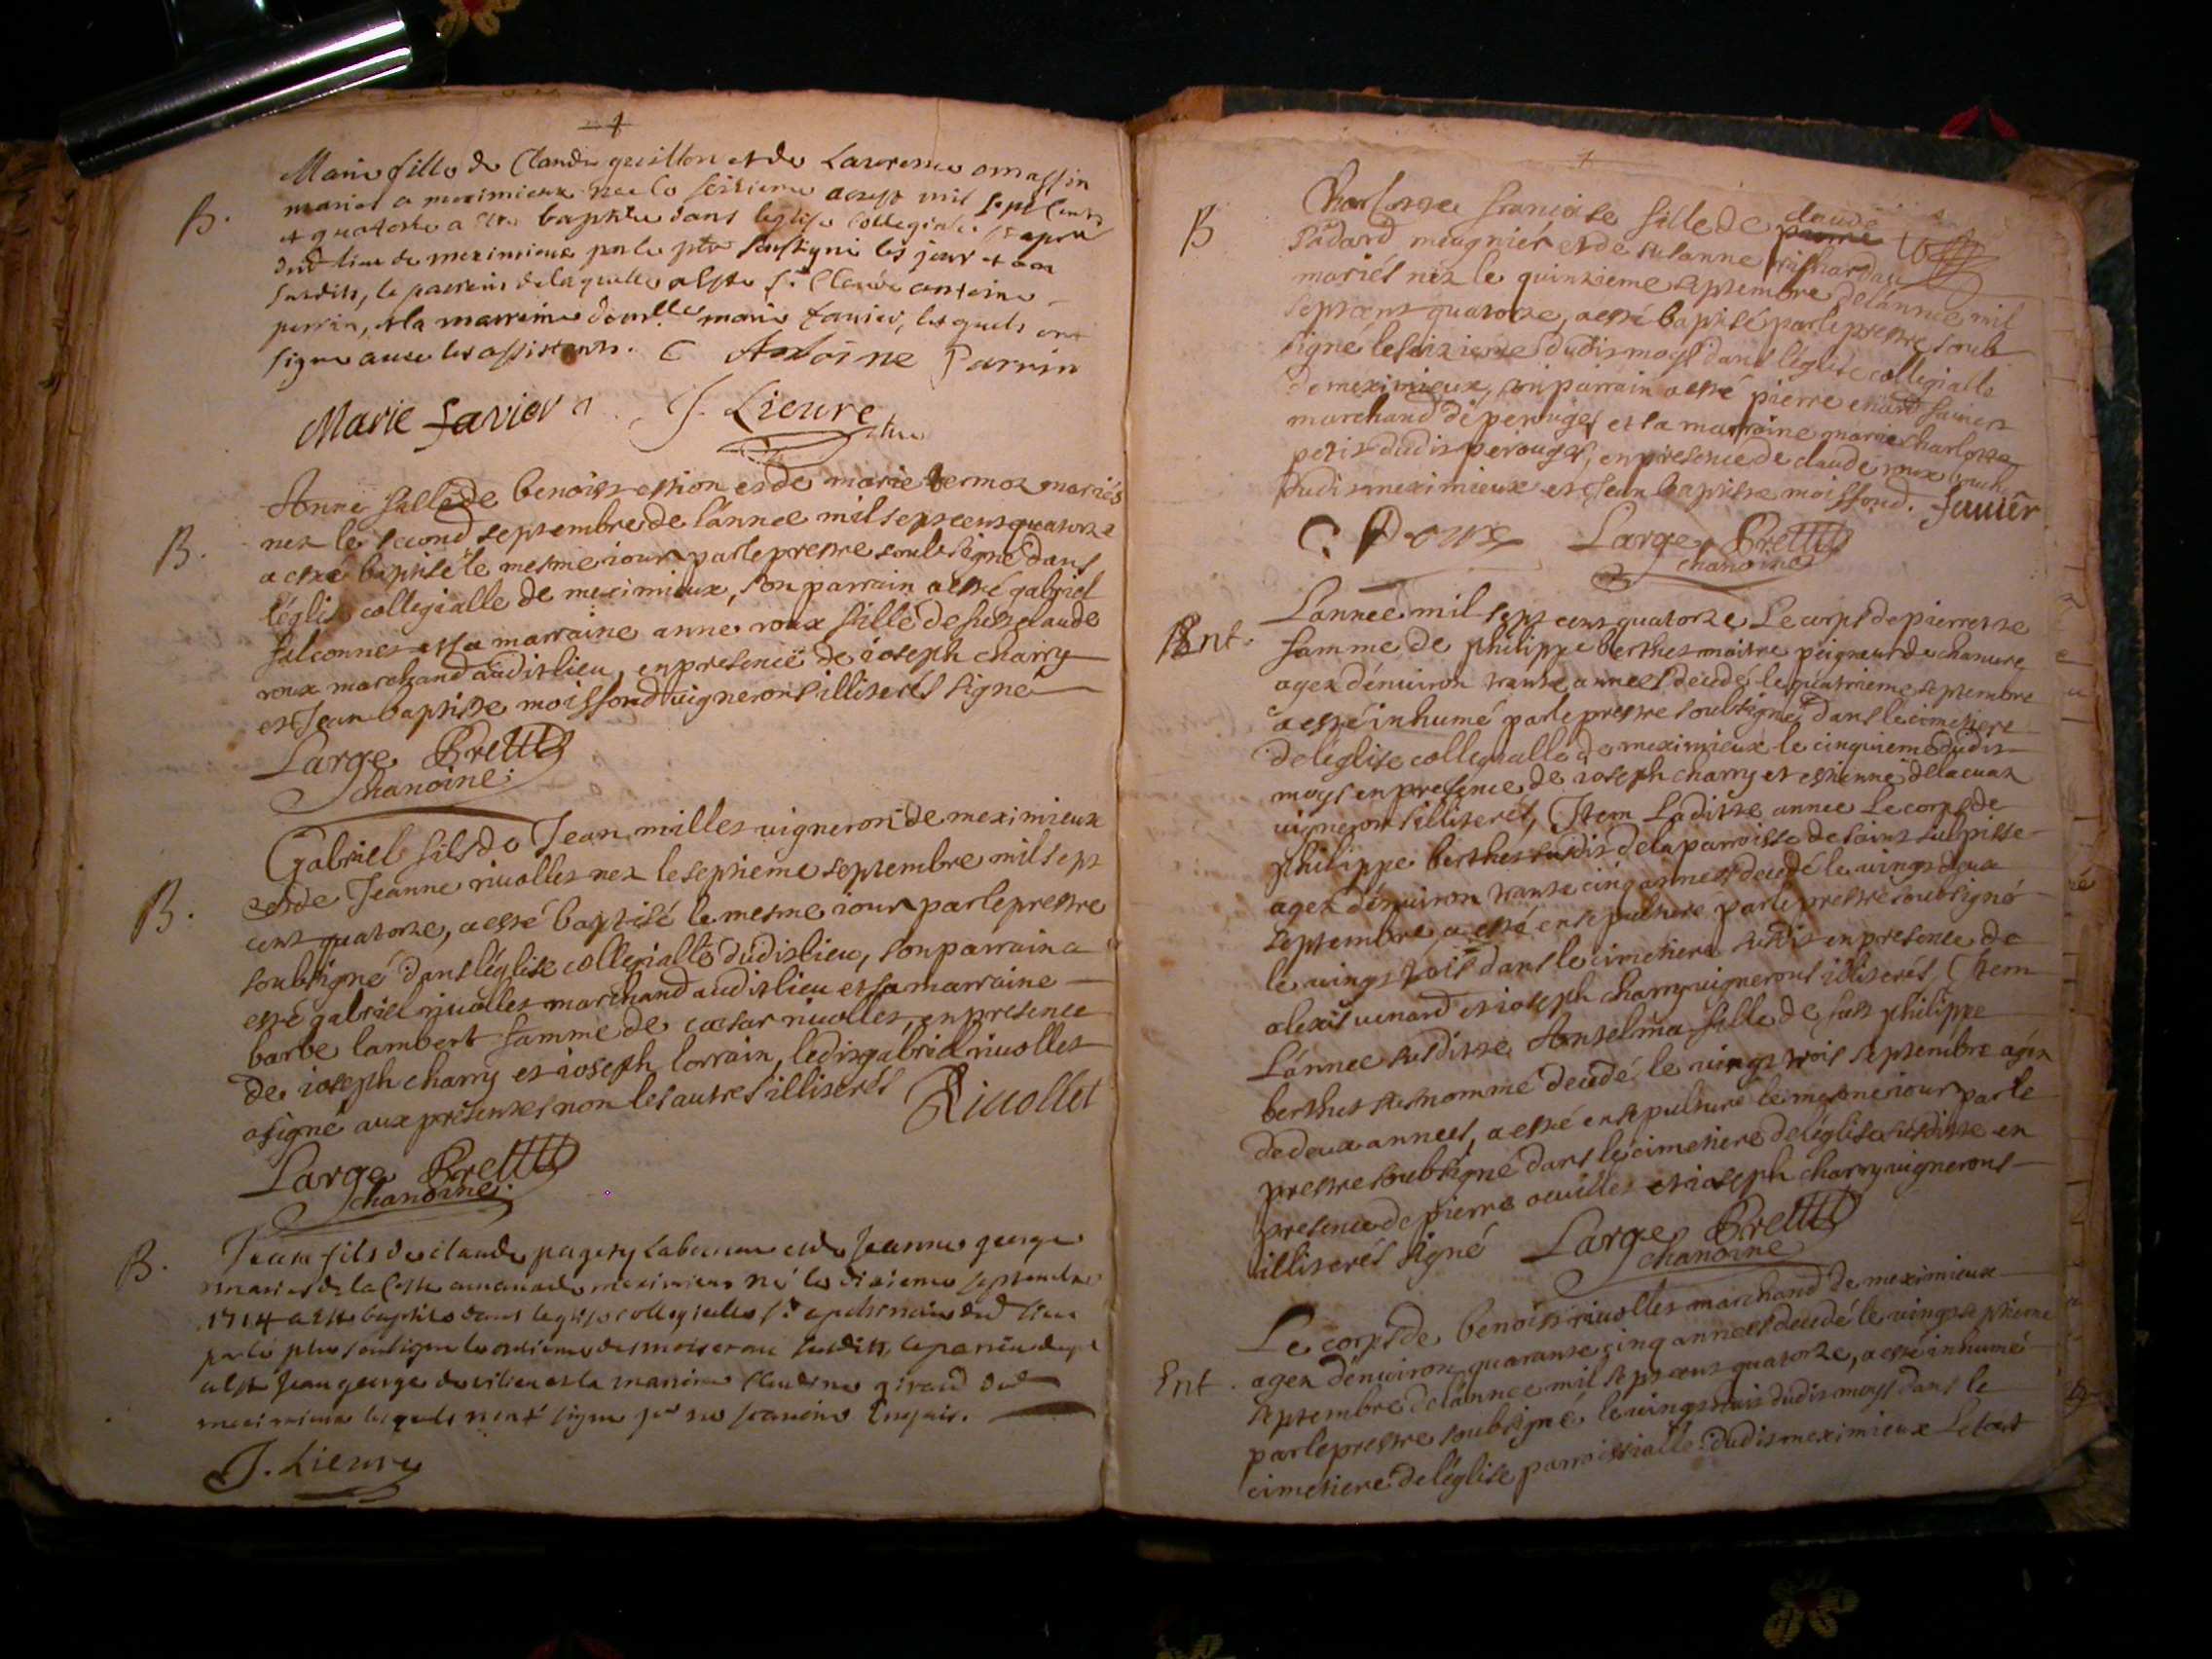 B.
Marie fille de Claude guillon et de Laurence omassin
mariés a meximieux nee le seizieme aoust mil sept cents
et quatorze a este baptisée dans leglise collegiale St apre
dud lieu de meximieux par le ptre soussigné les jour et an
susdits, le parrein de laquelle a esté sr Claude antoine
perrin, et la marreine Damlle marie favier, lesquels ont
signe avec les assistants. C Antoine Parrin
Marie favier J. Lieure
B.
Anne fille de benoist ession et de marie bermoz mariés
nez le second septembre de l'année mil sept cent quatorze
a esté baptisé le mesme iour par le prestre soubsigné dans
l'église collegialle de meximieux, son parrain a esté gabriel
falconnet et sa marraine anne roux fille de fust claude
roux marchand audit lieu, en presence de ioseph charry
et Jean baptiste moissond vignerons illiterés signé
Large Prettre
chanoine.
B.
Gabriel fils de Jean milles vigneron de meximieux
et de Jeanne riuolles nez le septieme septembre mil sept
cent quatorze, a esté baptisé le mesme iour par le prestre
soubsigné dans l'église collegialle dudit lieu, son parrain a
esté gabriel riuolles marchand audit lieu et sa marraine
barbe lambert famme de cœsar riuolles, en presence
de ioseph charry et ioseph lorrain, ledit gabriel riuolles
a signé aux presentes non les autres illiterés Riuollet
Large Prettre
chanoine.
B.
Jean fils de claude pagety Laboureur et de Jeanne george
mariés de la Coste annexe de meximieux né le dixieme septembre
1714 a esté baptisé dans leglise collegialle St apolinaire dud lieu
par le ptre soussigné le onzieme des mois et an susdits, le parrein
a esté Jean george dud lieu et la marreine Claudine giraud dud
meximieux lesquels n'ont signe pour ne scavoir Enquis.
J. Lieure
B
Charlotte francoise fille de claude
Padard meugnier et de susanne
mariés nez le quinzieme septembre de l'année mil
sept cent quatorze, a esté baptisé par le prestre soub
signé le seizieme dudit moys dans l'église collegialle
de meximieux, son parrain a esté pierre
marchand de perouges et sa marraine marie charlotte
petit dudit perouges, en presence de claude roux
dudit meximieux et Jean baptiste moissond. fauier
C. Roux Large Prettre
chanoine
Ent.
L'annee mil sept cent quatorze Le corps de pierrette
famme de philippe berthet maitre peigneur de chanure
agez d'enuiron trante annees decedé le quatrieme septembre
a esté inhumé par le prestre soubsigné dans le cimetiere
de l'église collegialle de meximieux le cinquieme dudit
moys en presence de ioseph charry et estienne delacuaz
vignerons illiterés, Item Laditte annee Le corps de
philippe berthet susdit de la parroisse de saint sulpisse
agez d'enuiron trante cinq annees decedé le vingt deux
septembre a esté ensepulturé par le prestre soubsigné
le vingt trois dans le cimetiere susdit en presence de
alexis venard et ioseph charry vignerons illiterés, Item
L'annee susditte Anselma fille de fust philippe
berthet susnommé decedé le vingt trois septembre agéz
de deux annees, a esté ensepulturé le mesme iour par le
prestre soubsigné dans le cimetiere de l'église susditte en
presence de pierre ouilles et ioseph charry vignerons
illiterés signé Large Prettre
chanoine
Ent.
Le corps de benoist riuolles marchand de meximieux
agez d'enuiron quarante cinq annees decedé le vingt septieme
septembre de l'annee mil sept cent quatorze, a esté inhumé
par le prestre soubsigné le vingt huit dudit moys dans le
cimetiere de l'église parroissialle dudit meximieux